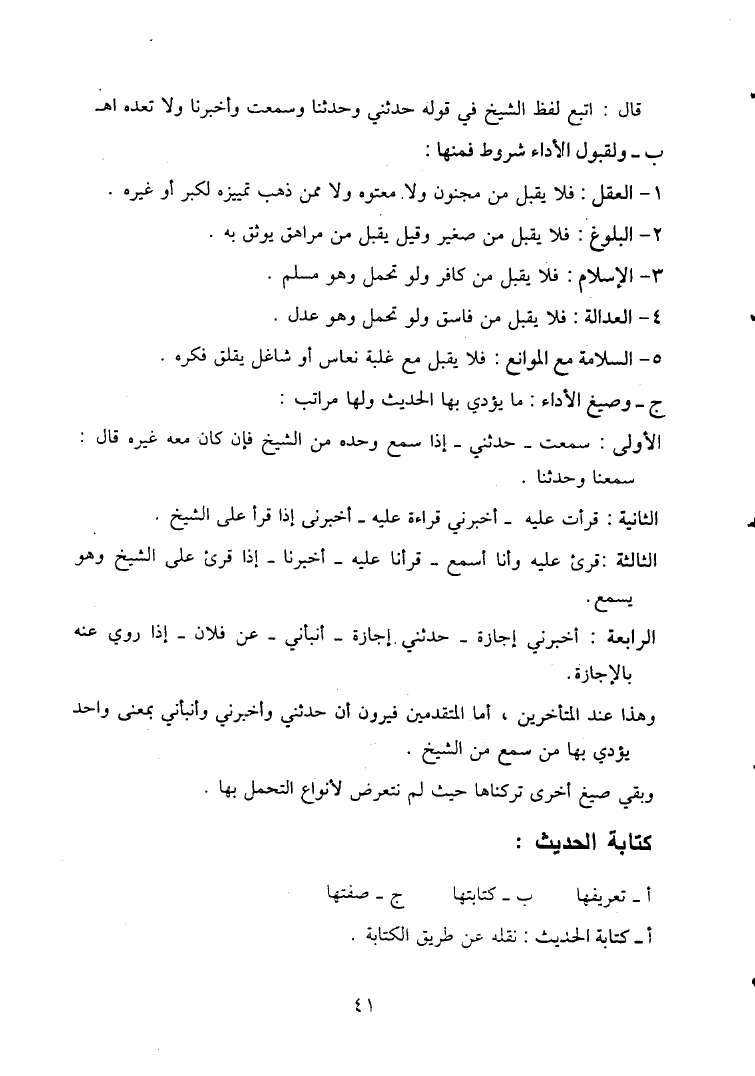 قال : اتبع لفظ الشيخ في قوله حدثني وحدثنا وسمعت وأخبرنا ولا تعده اهـ
ب ـ ولقبول الأداء شروط فمنها :
١- العقل : فلا يقبل من مجنون ولا معتوه ولا ممن ذهب تمييزه لكبر أو غيره .
٢- البلوغ : فلا يقبل من صغير وقيل يقبل من مراهق يوثق به .
٣- الإسلام : فلا يقبل من كافر ولو تحمل وهو مسلم .
٤- العدالة : فلا يقبل من فاسق ولو تحمل وهو عدل .
٥- السلامة مع الموانع : فلا يقبل مع غلبة نعاس أو شاغل يقلق فكره .
ج ـ وصيغ الأداء : ما يؤدي بها الحديث ولها مراتب :
الأولى : سمعت ـ حدثني ـ إذا سمع وحده من الشيخ فإن كان معه غيره قال :
سمعنا وحدثنا .
الثانية : قرأت عليه ـ أخبرني قراءة عليه ـ أخبرنى إذا قرأ على الشيخ .
الثالثة :قرئ عليه وأنا أسمع ـ قرأنا عليه ـ أخبرنا ـ إذا قرئ على الشيخ وهو
يسمع .
الرابعة : أخبرني إجازة ـ حدثني إجازة ـ أنبأني ـ عن فلان ـ إذا روي عنه
بالإجازة.
وهذا عند المتأخرين ، أما المتقدمين فيرون أن حدثني وأخبرني وأنبأني بمعنى واحد
يؤدي بها من سمع من الشيخ .
وبقي صيغ أخرى تركناها حيث لم نتعرض لأنواع التحمل بها .
كتابة الحديث :
أ ـ تعريفها ب ـ كتابتها ج ـ صفتها
أ ـ كتابة الحديث : نقله عن طريق الكتابة .
٤١